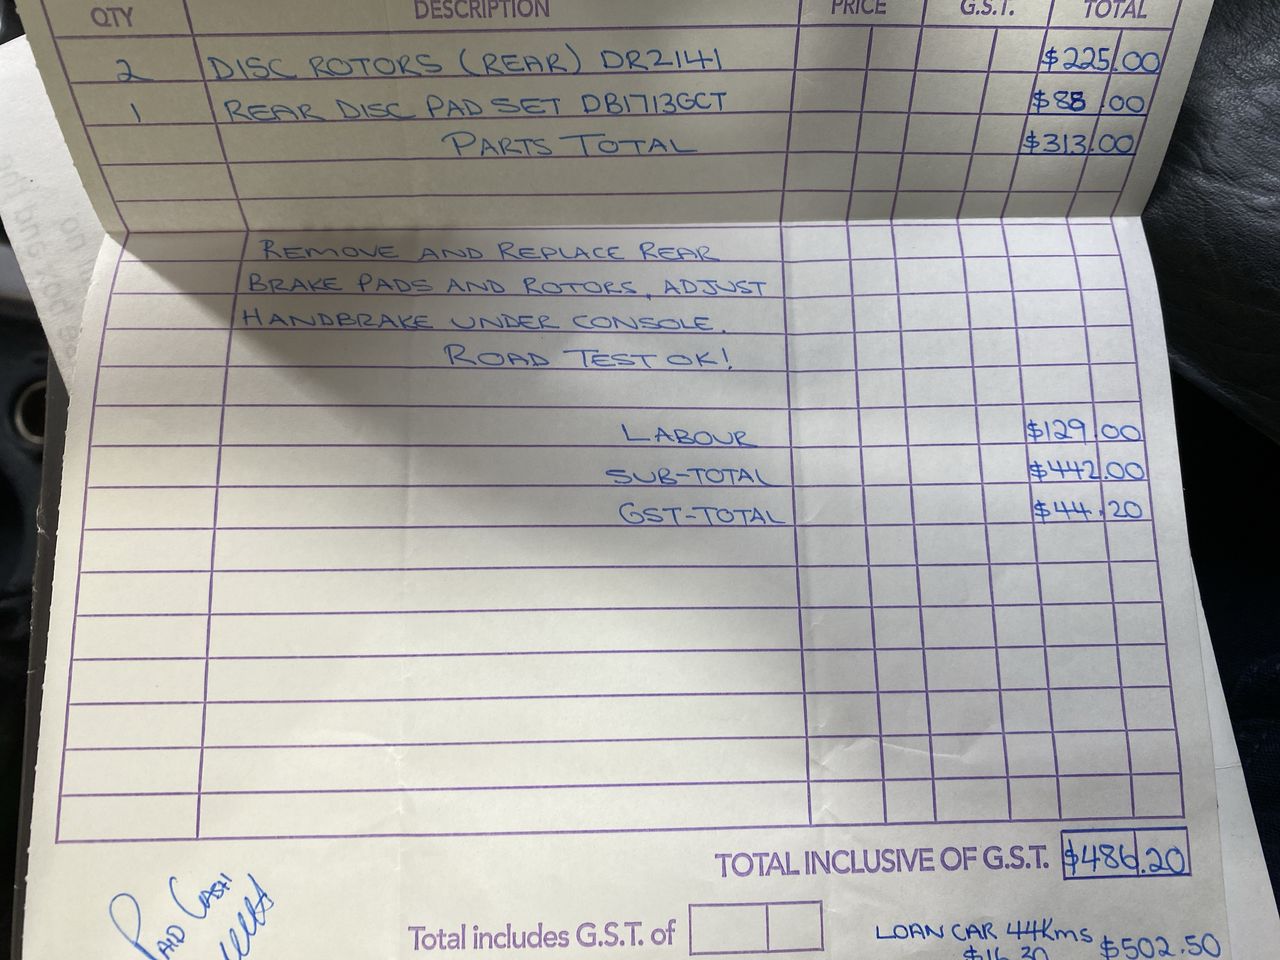 QTY DESCRIPTION PRICE G.S.T. TOTAL
2 DISC ROTORS (REAR) DR2141 $225.00
1 REAR DISC PAD SET DB1713GCT $88.00
PARTS TOTAL $313.00
REMOVE AND REPLACE REAR
BRAKE PADS AND ROTORS, ADJUST
HANDBRAKE UNDER CONSOLE.
ROAD TEST OK!
LABOUR $129.00
SUB-TOTAL $442.00
GST-TOTAL $44.20
TOTAL INCLUSIVE OF G.S.T. $486.20
PAID CASH
Total includes G.S.T. of
LOAN CAR 44Kms $502.50
$16.30